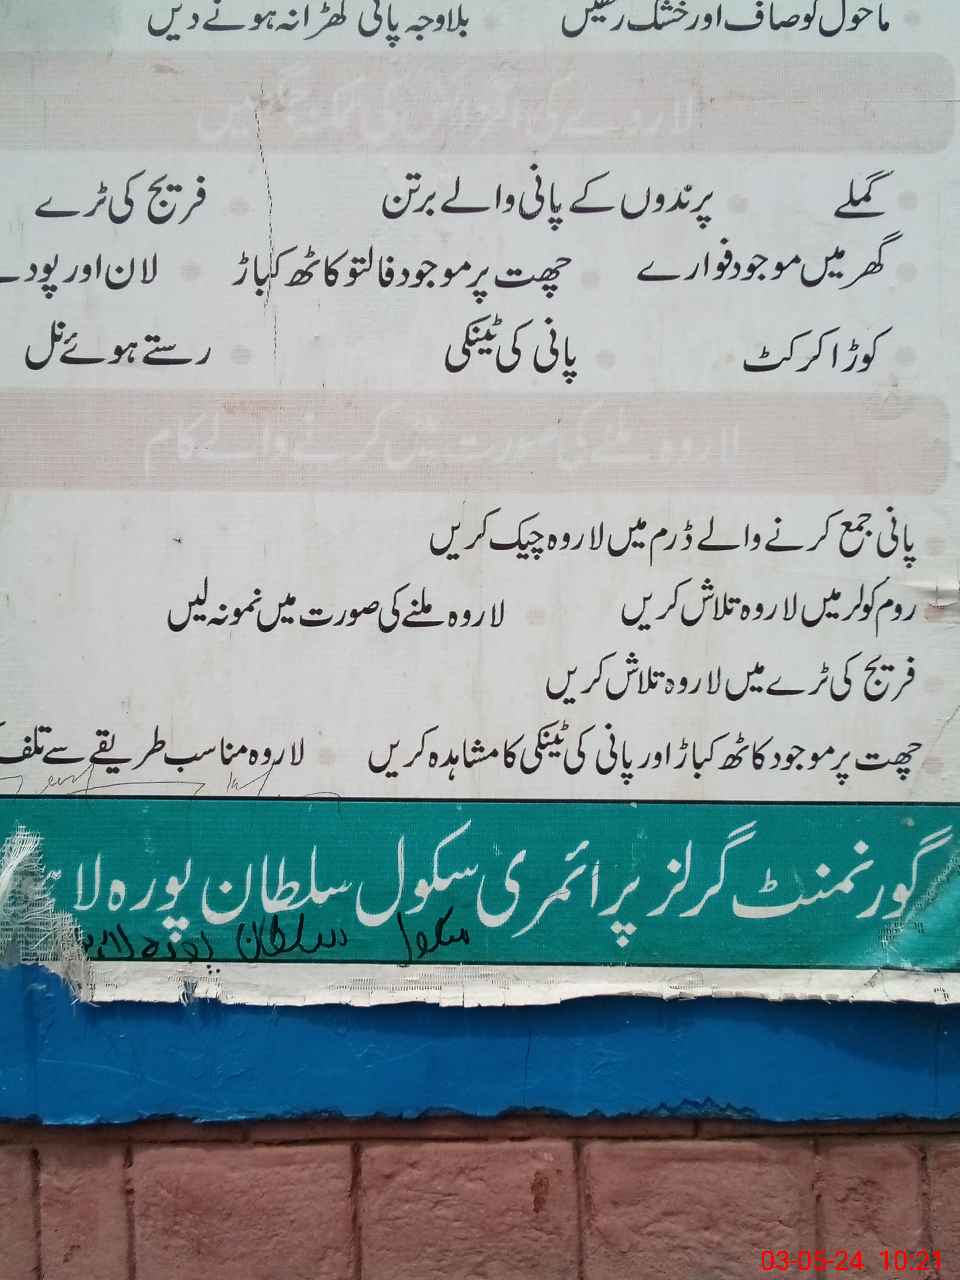 ماحول کو صاف اور خشک رکھیں بلاوجہ پانی کھڑا نہ ہونے دیں
لاروے کی افزائش کی ممکنہ جگہیں
گملے پرندوں کے پانی والے برتن فریج کی ٹرے
گھر میں موجود فوارے چھت پر موجود فالتو کاٹھ کباڑ لان اور پودے
کوڑا کرکٹ پانی کی ٹینکی رستے ہوئے نل
لاروہ ملنے کی صورت میں کرنے والے کام
پانی جمع کرنے والے ڈرم میں لاروہ چیک کریں
روم کولر میں لاروہ تلاش کریں لاروہ ملنے کی صورت میں نمونہ لیں
فریج کی ٹرے میں لاروہ تلاش کریں
چھت پر موجود کاٹھ کباڑ اور پانی کی ٹینکی کا مشاہدہ کریں لاروہ مناسب طریقے سے تلف
گورنمنٹ گرلز پرائمری سکول سلطان پورہ لا
سکول سلطان پورہ
03-05-24 10:21